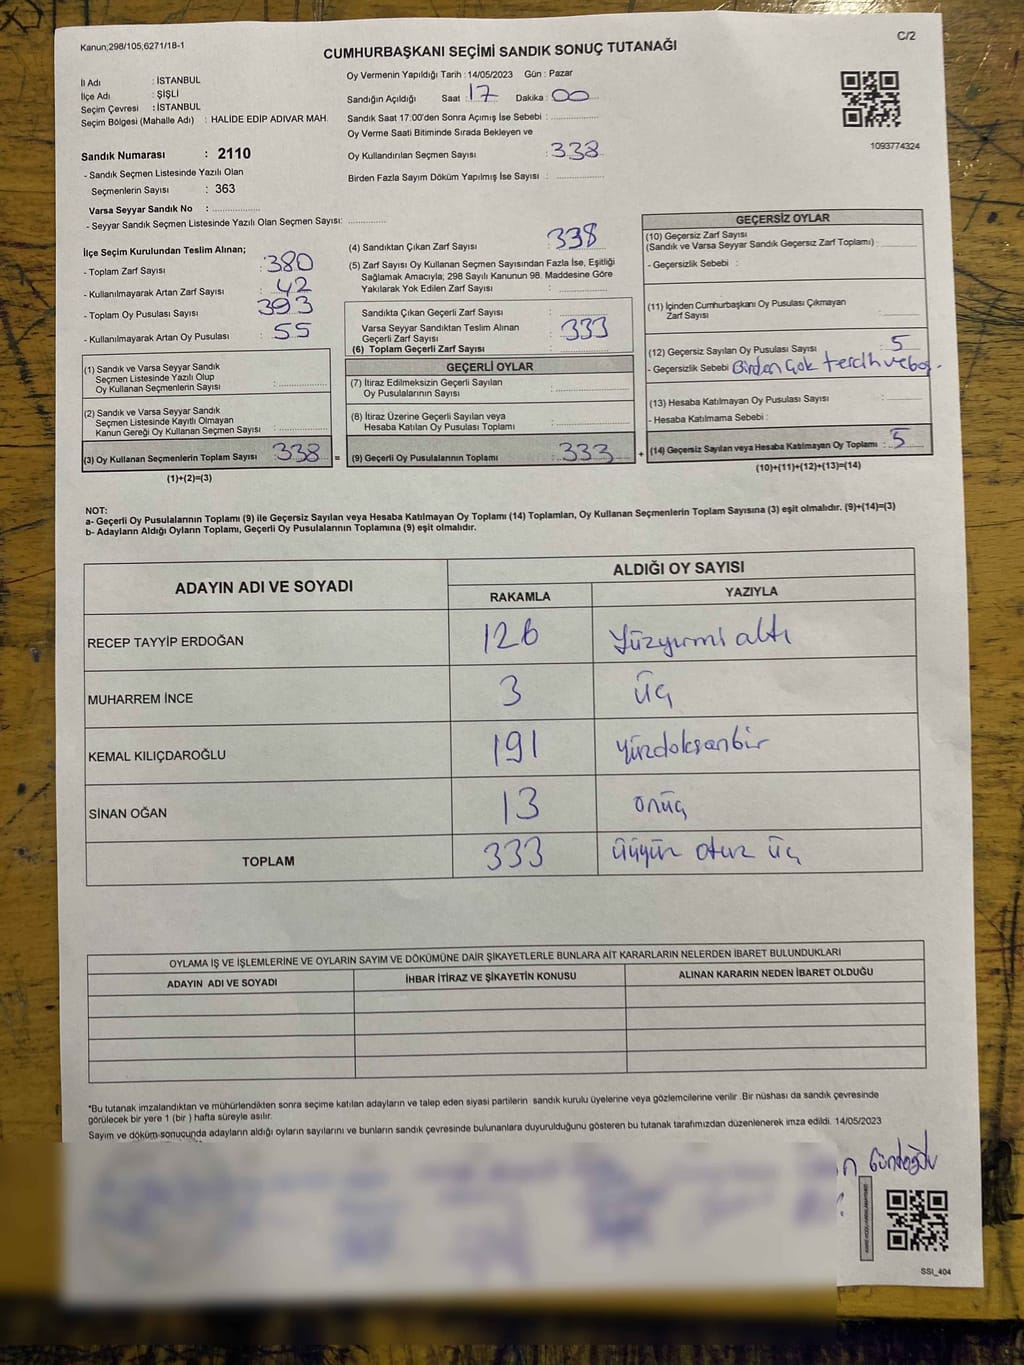 Kanun;298/105,6271/18-1
C/2
CUMHURBAŞKANI SEÇİMİ SANDIK SONUÇ TUTANAĞI
İl Adı : İSTANBUL
İlçe Adı : ŞİŞLİ
Seçim Çevresi : İSTANBUL
Seçim Bölgesi (Mahalle Adı) : HALİDE EDİP ADIVAR MAH.
Sandık Numarası : 2110
- Sandık Seçmen Listesinde Yazılı Olan
Seçmenlerin Sayısı : 363
Varsa Seyyar Sandık No : ..............
- Seyyar Sandık Seçmen Listesinde Yazılı Olan Seçmen Sayısı: ............
Oy Vermenin Yapıldığı Tarih : 14/05/2023 Gün : Pazar
Sandığın Açıldığı Saat : 17 Dakika : 00
Sandık Saat 17:00'den Sonra Açımış İse Sebebi : ..............
Oy Verme Saati Bitiminde Sırada Bekleyen ve
Oy Kullandırılan Seçmen Sayısı : 338
Birden Fazla Sayım Döküm Yapılmış İse Sayısı : ..............
1093774324
İlçe Seçim Kurulundan Teslim Alınan;
- Toplam Zarf Sayısı : 380
- Kullanılmayarak Artan Zarf Sayısı : 42
- Toplam Oy Pusulası Sayısı : 393
- Kullanılmayarak Artan Oy Pusulası : 55
(1) Sandık ve Varsa Seyyar Sandık
Seçmen Listesinde Yazılı Olup
Oy Kullanan Seçmenlerin Sayısı : ..............
(2) Sandık ve Varsa Seyyar Sandık
Seçmen Listesinde Kayıtlı Olmayan
Kanun Gereği Oy Kullanan Seçmen Sayısı : ..............
(3) Oy Kullanan Seçmenlerin Toplam Sayısı : 338 =
(1)+(2)=(3)
(4) Sandıktan Çıkan Zarf Sayısı : 338
(5) Zarf Sayısı Oy Kullanan Seçmen Sayısından Fazla İse, Eşitliği
Sağlamak Amacıyla, 298 Sayılı Kanunun 98. Maddesine Göre
Yakılarak Yok Edilen Zarf Sayısı : ..............
Sandıkta Çıkan Geçerli Zarf Sayısı : ..............
Varsa Seyyar Sandıktan Teslim Alınan
Geçerli Zarf Sayısı : 333
(6) Toplam Geçerli Zarf Sayısı : ..............
GEÇERLİ OYLAR
(7) İtiraz Edilmeksizin Geçerli Sayılan
Oy Pusulalarının Sayısı : ..............
(8) İtiraz Üzerine Geçerli Sayılan veya
Hesaba Katılan Oy Pusulası Toplamı : ..............
(9) Geçerli Oy Pusulalarının Toplamı : 333 +
GEÇERSİZ OYLAR
(10) Geçersiz Zarf Sayısı
(Sandık ve Varsa Seyyar Sandık Geçersiz Zarf Toplamı) : ..........
- Geçersizlik Sebebi :
(11) İçinden Cumhurbaşkanı Oy Pusulası Çıkmayan
Zarf Sayısı : ..........
(12) Geçersiz Sayılan Oy Pusulası Sayısı : 5
- Geçersizlik Sebebi Birden Çok tercih ve boş.
(13) Hesaba Katılmayan Oy Pusulası Sayısı : ..........
- Hesaba Katılmama Sebebi :
(14) Geçersiz Sayılan veya Hesaba Katılmayan Oy Toplamı : 5
(10)+(11)+(12)+(13)=(14)
NOT:
a- Geçerli Oy Pusulalarının Toplamı (9) ile Geçersiz Sayılan veya Hesaba Katılmayan Oy Toplamı (14) Toplamları, Oy Kullanan Seçmenlerin Toplam Sayısına (3) eşit olmalıdır. (9)+(14)=(3)
b- Adayların Aldığı Oyların Toplamı, Geçerli Oy Pusulalarının Toplamına (9) eşit olmalıdır.
ADAYIN ADI VE SOYADI
ALDIĞI OY SAYISI
RAKAMLA YAZIYLA
RECEP TAYYİP ERDOĞAN 126 Yüzyirmi altı
MUHARREM İNCE 3 üç
KEMAL KILIÇDAROĞLU 191 yüzdoksanbir
SİNAN OĞAN 13 onüç
TOPLAM 333 üçyüz otuz üç
OYLAMA İŞ VE İŞLEMLERİNE VE OYLARIN SAYIM VE DÖKÜMÜNE DAİR ŞİKAYETLERLE BUNLARA AİT KARARLARIN NELERDEN İBARET BULUNDUKLARI
ADAYIN ADI VE SOYADI İHBAR İTİRAZ VE ŞİKAYETİN KONUSU ALINAN KARARIN NEDEN İBARET OLDUĞU
*Bu tutanak imzalandıktan ve mühürlendikten sonra seçime katılan adayların ve talep eden siyasi partilerin sandık kurulu üyelerine veya gözlemcilerine verilir .Bir nüshası da sandık çevresinde
görülecek bir yere 1 (bir ) hafta süreyle asılır.
Sayım ve döküm sonucunda adayların aldığı oyların sayılarını ve bunların sandık çevresinde bulunanlara duyurulduğunu gösteren bu tutanak tarafımızdan düzenlenerek imza edildi. 14/05/2023
n Gündoğdu
SSI_404